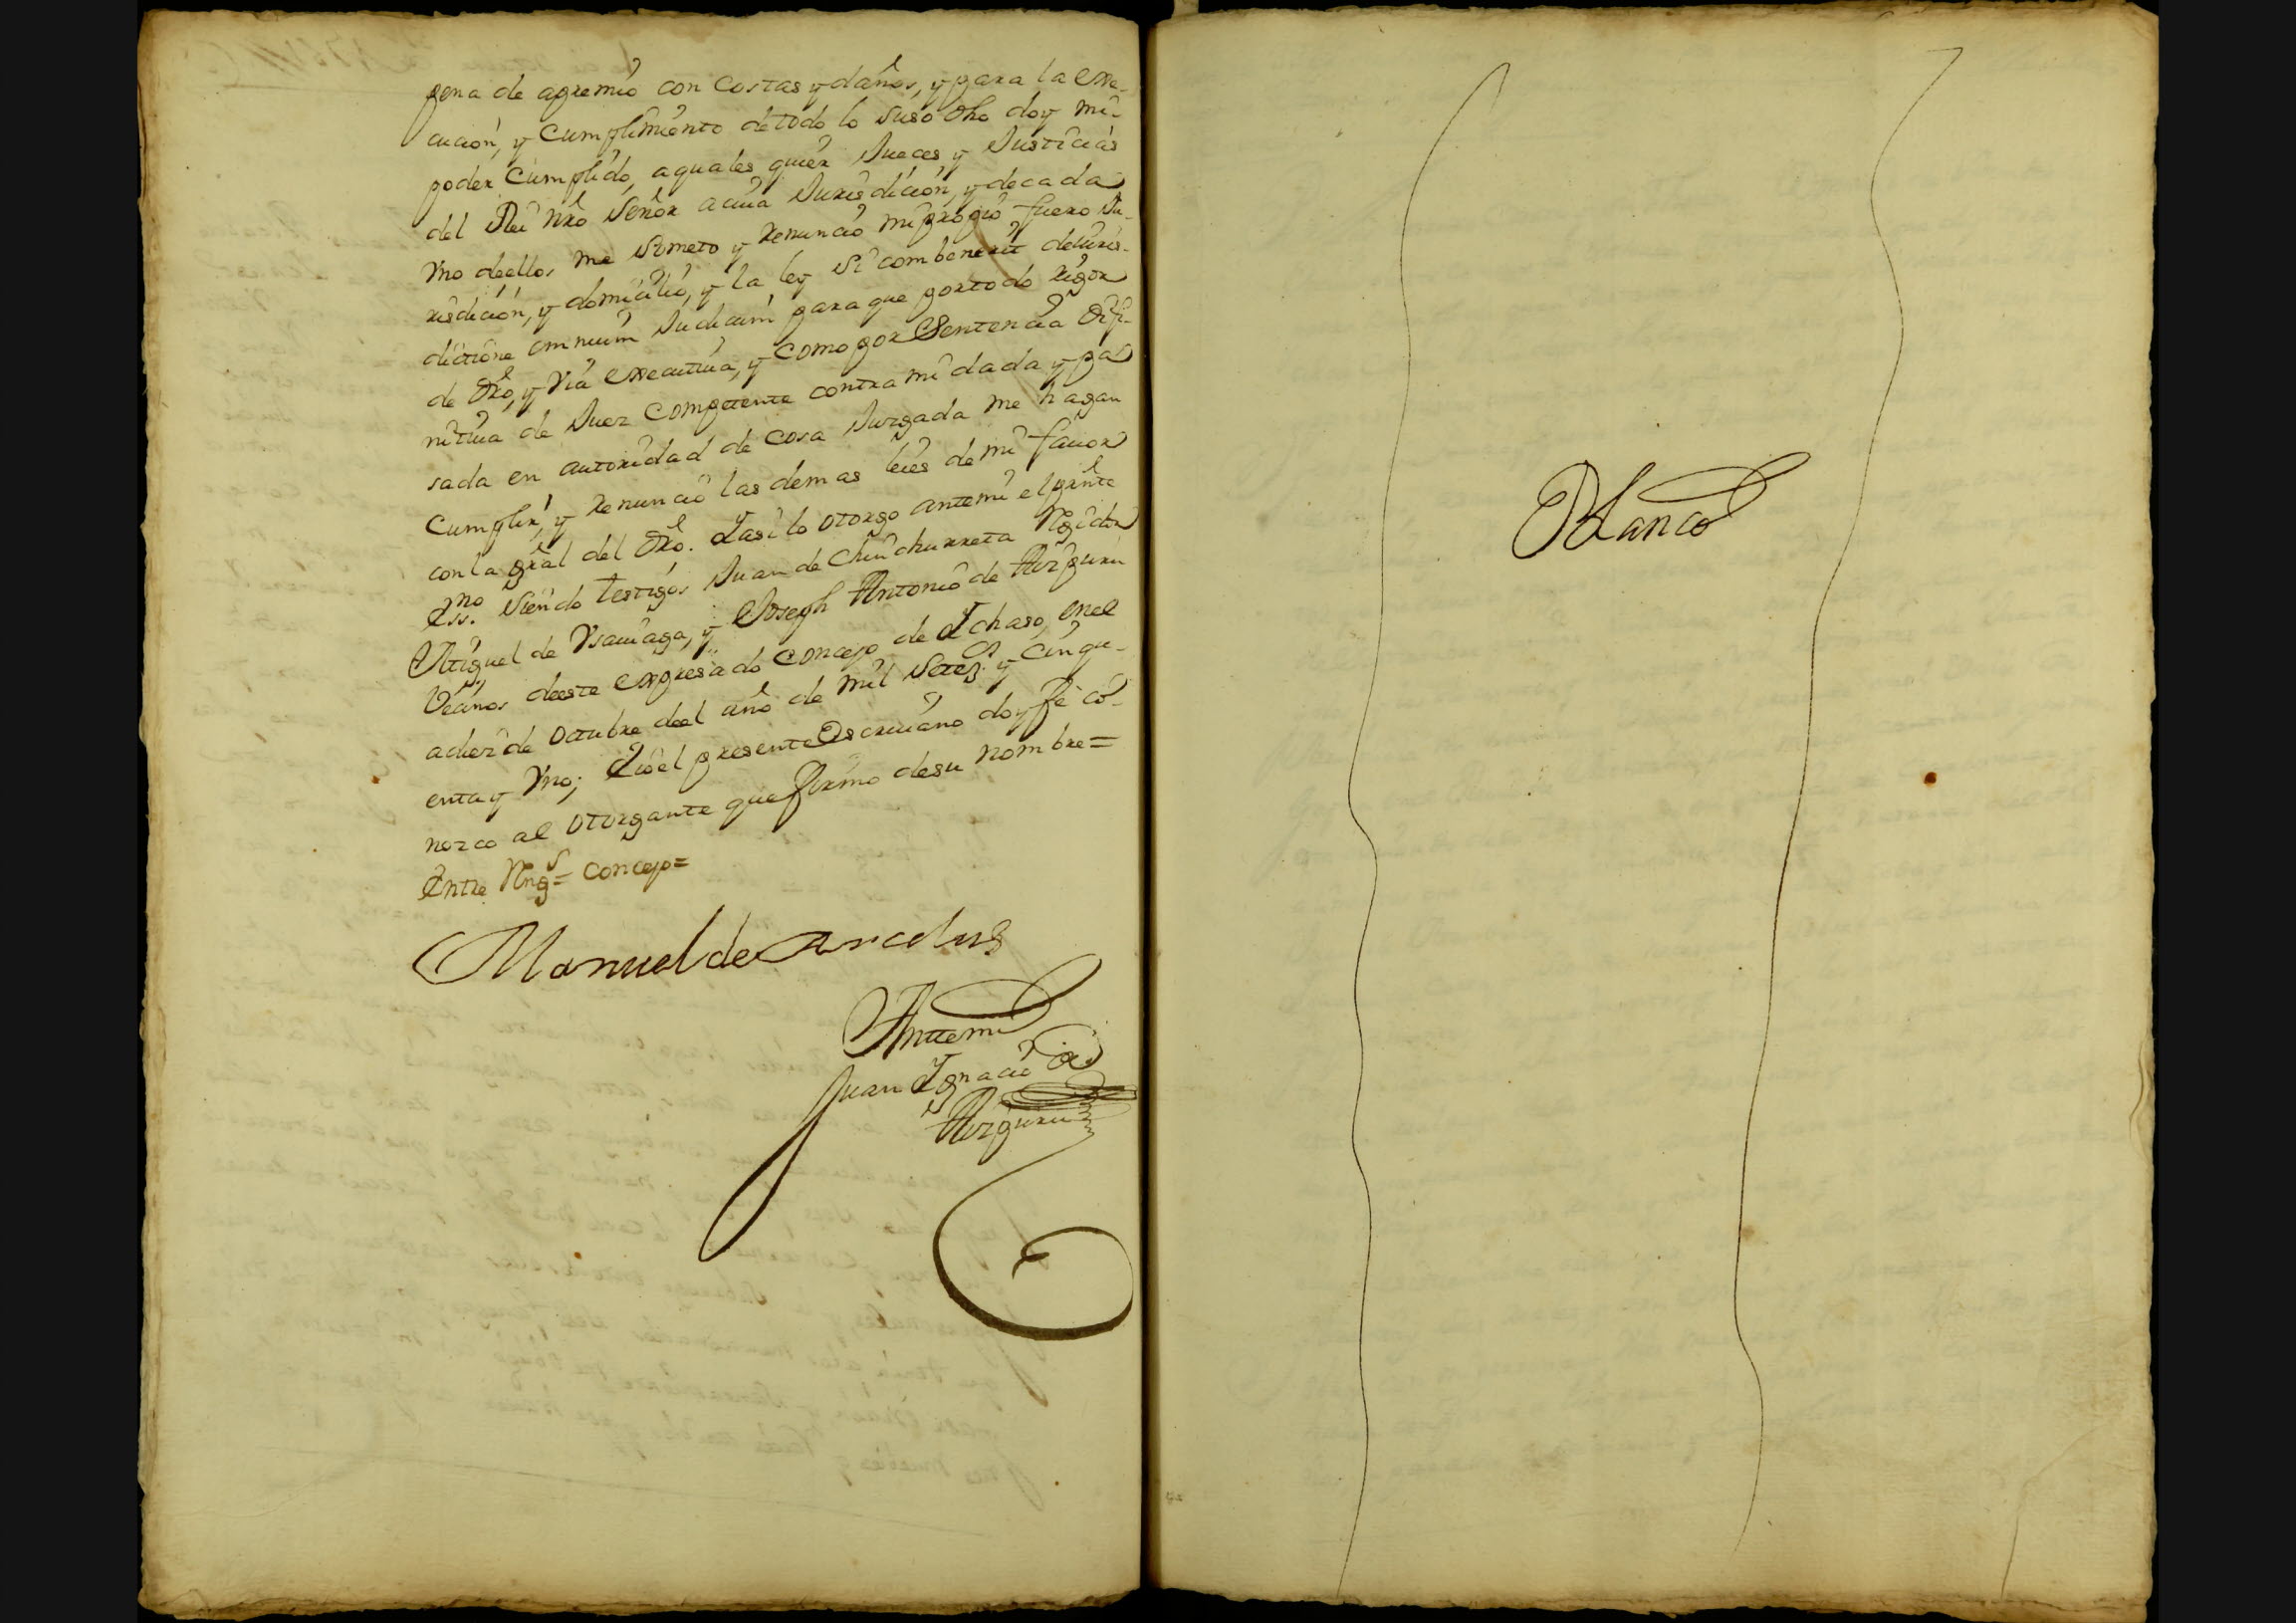 pena de apremio con costas y daños, y para la exe-
cucion, y cumplimiento de todo lo suso dho doy mi
poder cumplido, a quales quier Jueces y Justicias
del Rei nro Señor a cuia Jurisdicion, y de cada
Vno deellos me someto y renuncio mi propio fuero Ju-
risdicion, y domicilio, y la ley si combenerit de Juris-
dictione omnium Judicum para que por todo rigor
de dro, y via executiua, y como por Sentencia difi-
nitiua de Juez competente contra mi dada y pa
sada en autoridad de cosa Juzgada me hagan
cumplir, y renuncio las demas leies de mi fauor
con la gral del dro. Y asi lo otorgo ante mi el preste
Essno. siendo testigos Juan de Chinchurreta Regidor
Miguel de Ysauiaga, y Joseph Antonio de Aizpuru
Vecinos deeste expresado concejo de Ychaso, en el
a diez de Octubre deel año de mil Setezs. y cinqu-
enta y Vno; E io el presente Escriuano doy fe co-
nozco al otorgante que firmo de su nombre=
Entre Rengs= concejo=
Manuel de Arcelus
Antemi
Juan Ygnacio de
Aizpuru
Blanco